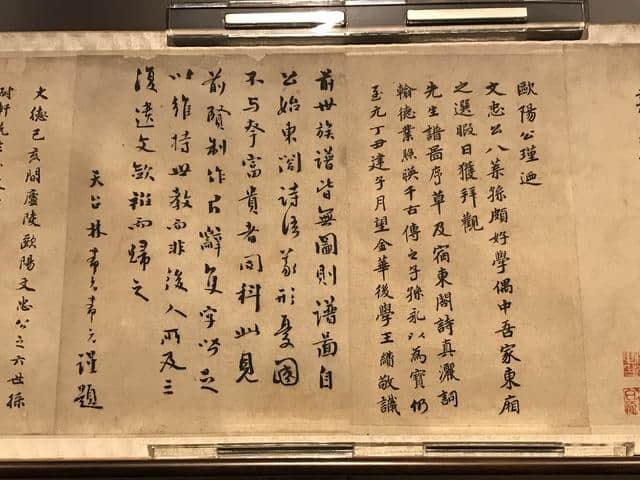 歐陽公瑾迺
文忠公八葉孫頗好學偶中吾家東廂
之選暇日獲拜觀
先生譜圖序草及宿東閣詩真灑詞
翰德業照暎千古傳之子孫永以為寶仍
至元丁丑建子月望金華後學王敬識
前世族譜皆無圖則譜圖自
公始東閣詩語形憂國
不与夸富貴者同科此見
前賢制作隻字皆足
以維持世教而非後人所及三
復遺文歛衽而歸之
天台林希元謹題
大德己亥間廬陵歐陽文忠公之六世孫